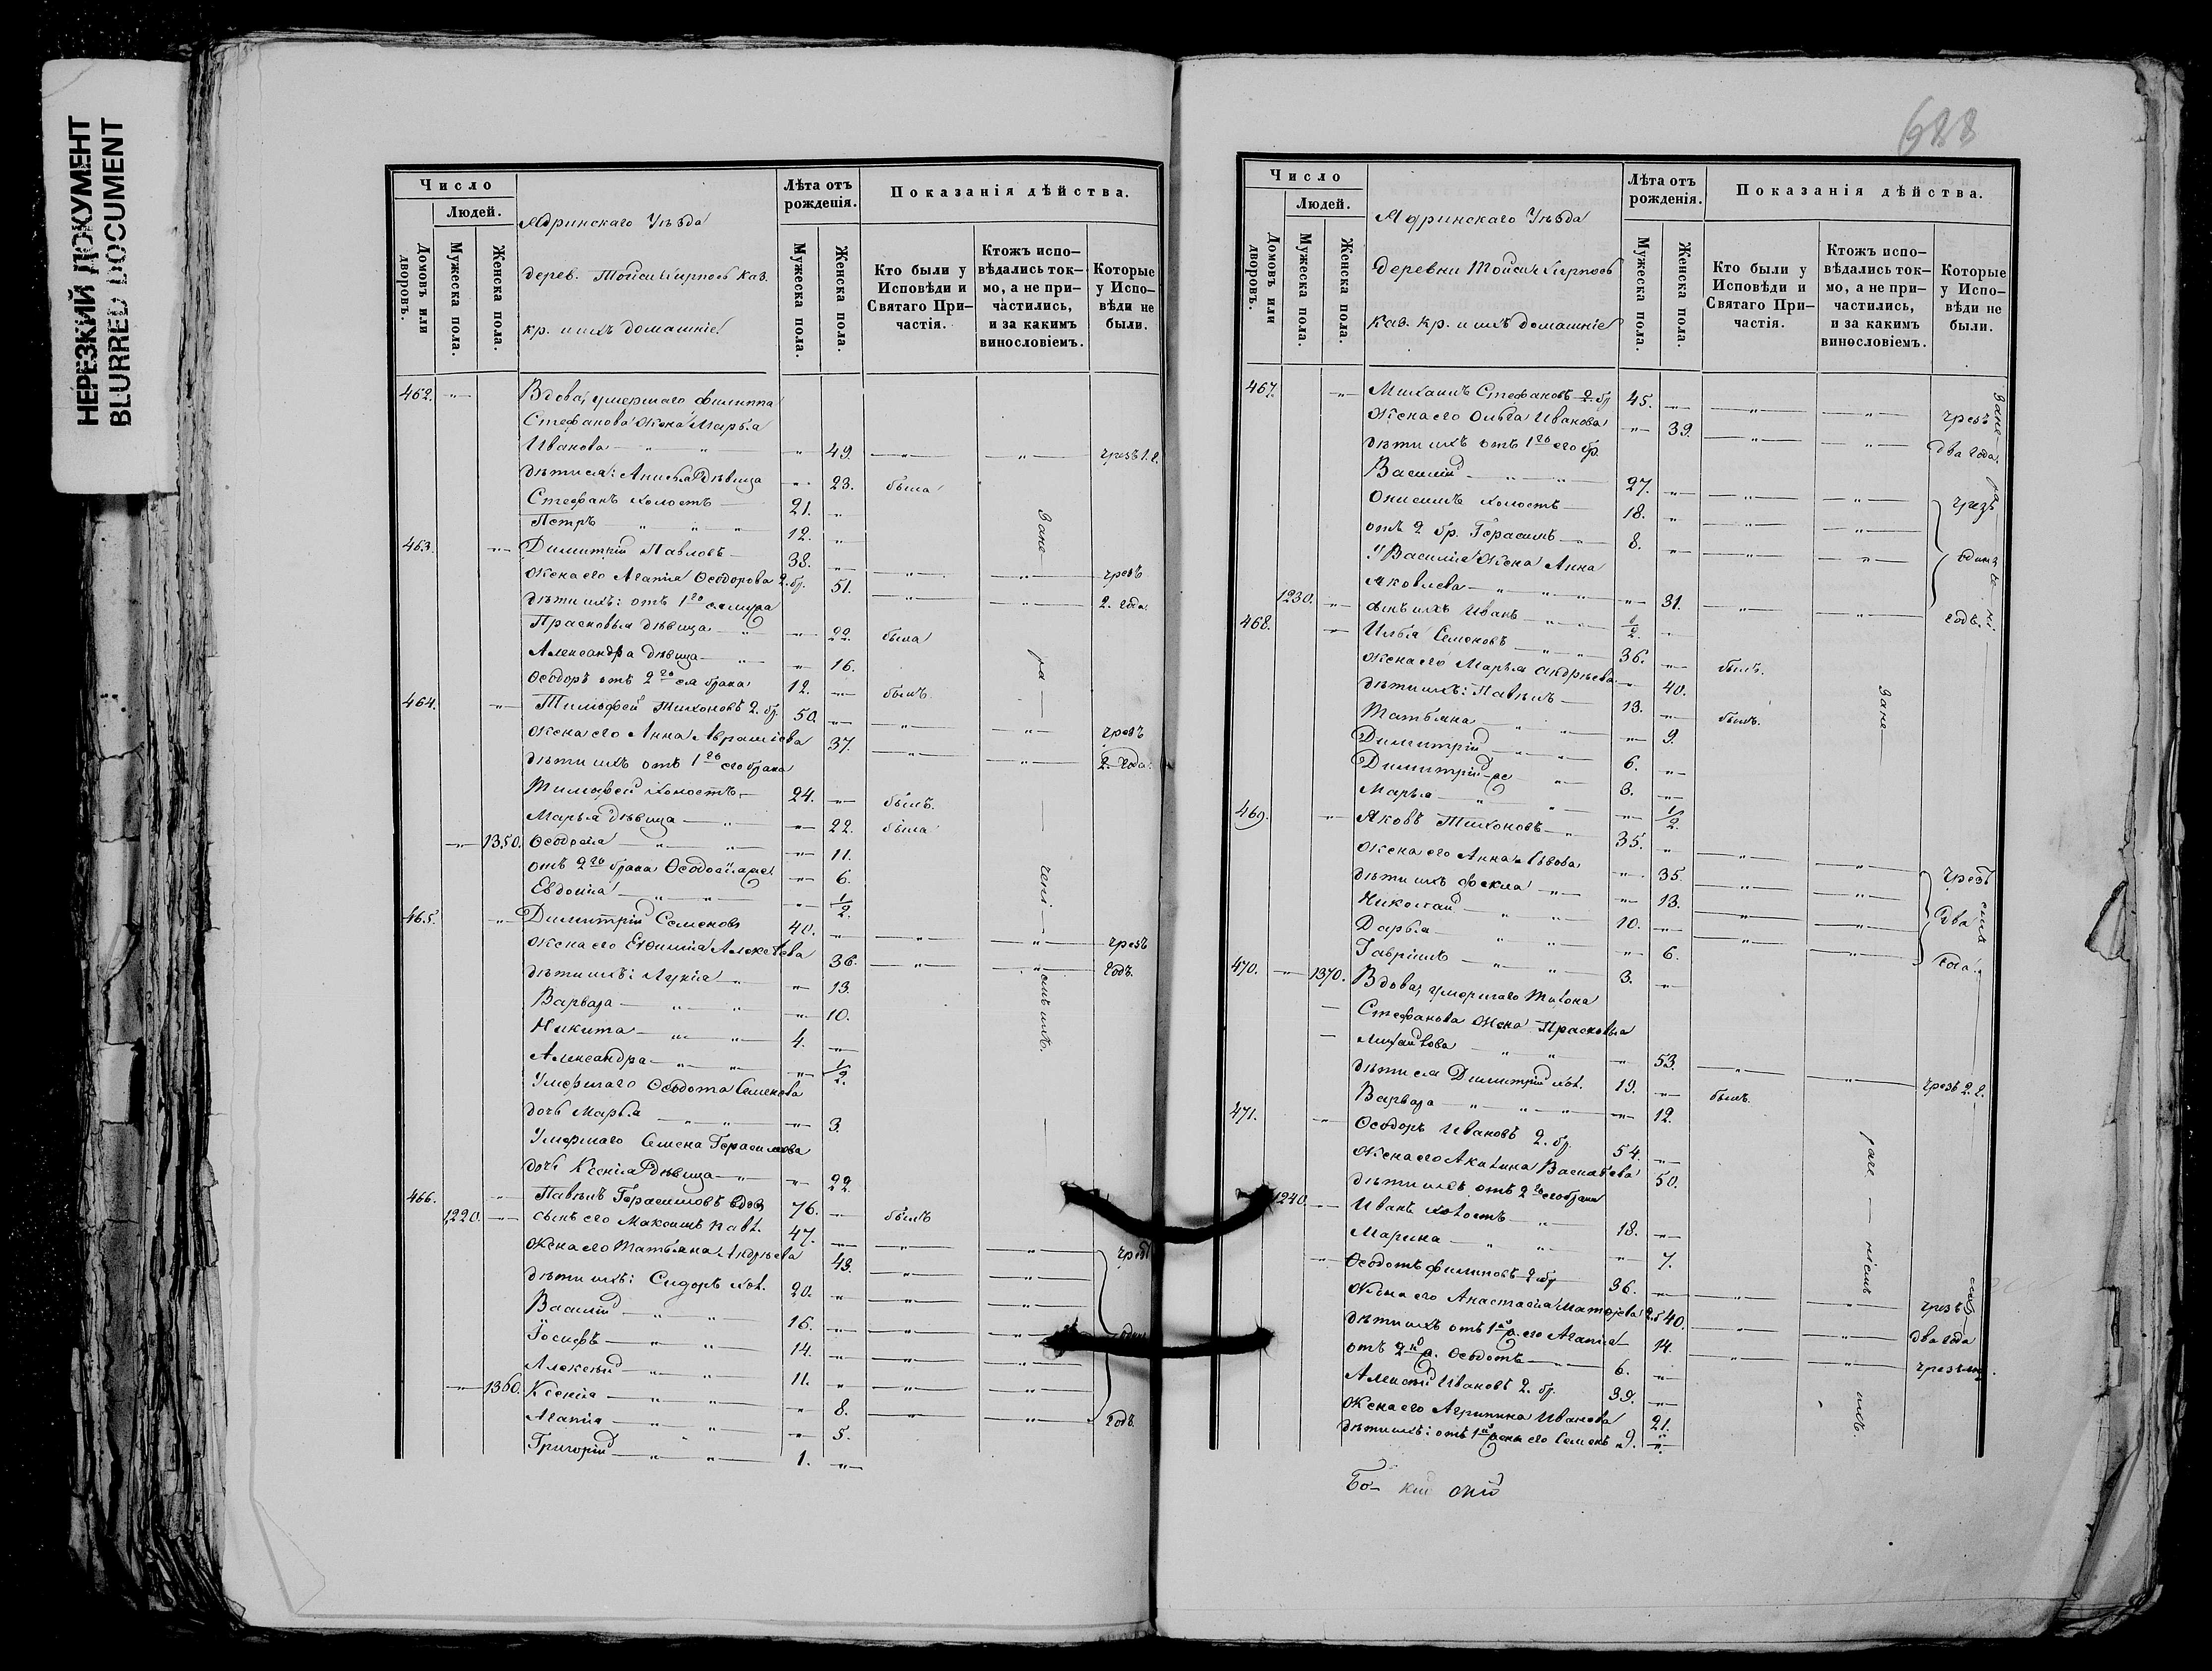 НЕРЕЗКИЙ ДОКУМЕНТ
BLURRED DOCUMENT
Число
Людей.
Домовъ или дворовъ.
Мужеска пола.
Женска пола.
Ядринскаго Уѣзда
дерев. каз.
кр. и ихъ домашніе
Лѣта отъ рожденія.
Мужеска пола.
Женска пола.
Показанія дѣйства.
Кто были у Исповѣди и Святаго Причастія.
Ктожъ исповѣдались токмо, а не причастились, и за какимъ винословіемъ.
Которые у Исповѣди не были.
462. Вдова, умершаго Филиппа
Стефанова жена Марья
Иванова 49. чрезъ 1. г.
дѣти ея: дѣвица 23. была
Стефанъ холостъ 21.
Петръ 12.
463. Димитрій Павловъ 38. чрезъ
жена его Агапія Ѳеодорова 2. бр. 51. 2. года
дѣти ихъ: отъ 1го ея мужа
Прасковья дѣвица 22. была
Александра дѣвица 16.
Ѳеодоръ отъ 2го ея брака 12. былъ
464. Тимофей Тихоновъ 2. бр. 50. чрезъ
жена его Анна 37. 2. года
дѣти ихъ отъ 1го его брака
Тимофей холостъ 24. былъ.
Марья дѣвица 22. была
1350. Ѳеодосія 11.
отъ 2го брака Ѳеодосія же 6.
Евдокія 1/2.
465. Димитрій Семеновъ 40. чрезъ
жена его Евѳимія Алексѣева 36. годъ.
дѣти ихъ: Лукія 13.
Варвара 10.
Никита 4.
Александра 1/2.
Умершаго Ѳеодота Семенова
дочь Марья 3.
Умершаго Семена Герасимова
дочь Ксенія дѣвица 22.
466. Павелъ Герасимовъ вдов 76. былъ
1220. сынъ его Максимъ 47. чрезъ
жена его Татьяна Андреева 43.
дѣти ихъ: Сидоръ хол. 20.
Василій 16.
Іосифъ 14. одинъ
Алексѣй 11.
1360. Ксенія 8. годъ.
Агапія 5.
Григорій 1.
688
Число
Людей.
Домовъ или дворовъ.
Мужеска пола.
Женска пола.
Ядринскаго Уѣзда
деревни
каз. кр. и ихъ домашніе
Лѣта отъ рожденія.
Мужеска пола.
Женска пола.
Показанія дѣйства.
Кто были у Исповѣди и Святаго Причастія.
Ктожъ исповѣдались токмо, а не причастились, и за какимъ винословіемъ.
Которые у Исповѣди не были.
467. Михаилъ Стефановъ 2. бр 45. чрезъ
жена его Ольга Иванова 39. два года.
дѣти ихъ отъ 1го его бр.
Василій 27. чрезъ
Онисимъ холостъ 18.
отъ 2 бр. Герасимъ 8. одинъ
У Василія жена Анна
Яковлева 31. годъ.
1230. сынъ ихъ Иванъ 1/2.
468. Илья Семеновъ 36. былъ.
жена его Марья Андрѣева 40.
дѣти ихъ: Павелъ 13. былъ.
Татьяна 9.
Димитрій 6.
Димитрій же 3.
Марья 1/2.
469. Яковъ Тихоновъ 35. чрезъ
жена его Анна Львова 35.
дѣти ихъ Фекла 13. два
Николай 10. года.
Дарья 6.
Гавріилъ 3.
470. 1370. Вдова, умершаго
Стефанова жена Прасковья
Михайлова 53. чрезъ 2. г.
дѣти ея Димитрій хол. 19. былъ.
Варвара 12.
471. Ѳеодоръ Ивановъ 2. бр. 54.
жена его Акилина Васильева 50.
дѣти ихъ отъ 2го его брака
1240. Иванъ холостъ 18.
Марина 7.
Ѳеодотъ Филиповъ 2 бр 36. чрезъ
жена его Анастасія 2. б 40. два года
дѣти ихъ отъ его Агапія 14.
отъ Ѳеодотъ 6.
Алексѣй Ивановъ 2. бр. 39.
жена его Агрипина Иванова 21.
дѣти ихъ: отъ его Семенъ 9.